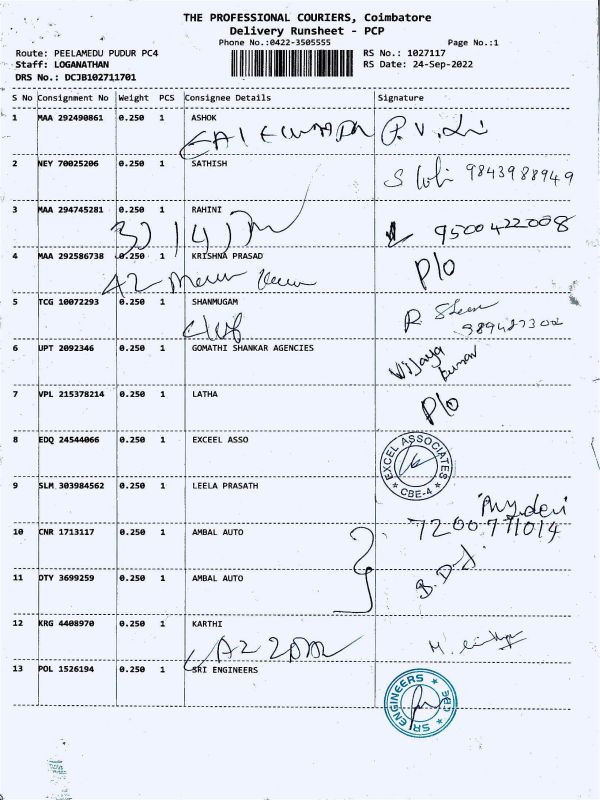 THE PROFESSIONAL COURIERS, Coimbatore
Delivery Runsheet - PCP
Phone No.:0422-3505555 Page No.:1
Route: PEELAMEDU PUDUR PC4 RS No.: 1027117
Staff: LOGANATHAN RS Date: 24-Sep-2022
DRS No.: DCJB102711701
S No Consignment No Weight PCS Consignee Details Signature
1 MAA 292490861 0.250 1 ASHOK
2 NEY 70025206 0.250 1 SATHISH
9843988949
3 MAA 294745281 0.250 1 RAHINI
9500422008
4 MAA 292586738 0.250 1 KRISHNA PRASAD P/O
A2
5 TCG 10072293 0.250 1 SHANMUGAM
R
6 UPT 2092346 0.250 1 GOMATHI SHANKAR AGENCIES Vijaya
kumar
7 VPL 215378214 0.250 1 LATHA P/O
8 EDQ 24544066 0.250 1 EXCEEL ASSO EXCEL ASSOCIATES
* CBE-4 *
9 SLM 303984562 0.250 1 LEELA PRASATH
10 CNR 1713117 0.250 1 AMBAL AUTO 7200771014
11 DTY 3699259 0.250 1 AMBAL AUTO
12 KRG 4408970 0.250 1 KARTHI
A2
13 POL 1526194 0.250 1 SRI ENGINEERS SRI ENGINEERS * CBE *